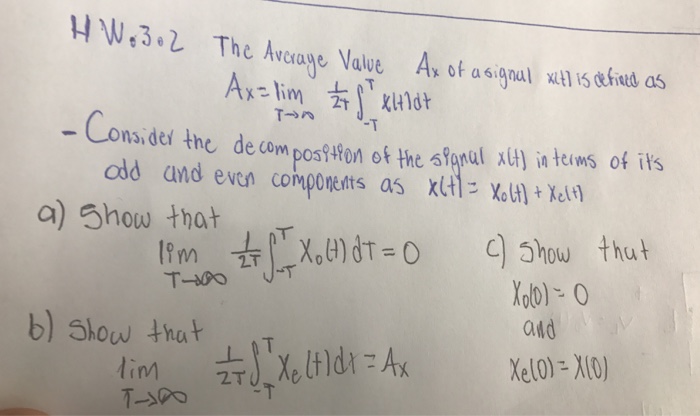 HW.3.2 The Average Value Ax of a signal x(t) is defined as
Ax = lim T→∞ 1/2T ∫_-T^T x(t)dt
- Consider the decomposition of the signal x(t) in terms of it's
odd and even components as x(t) = Xo(t) + Xe(t)
a) Show that
lim T→∞ 1/2T ∫_-T^T Xo(t) dT = 0
b) Show that
lim T→∞ 1/2T ∫_-T^T Xe(t)dt = Ax
c) Show that
Xo(0) = 0
and
Xe(0) = X(0)